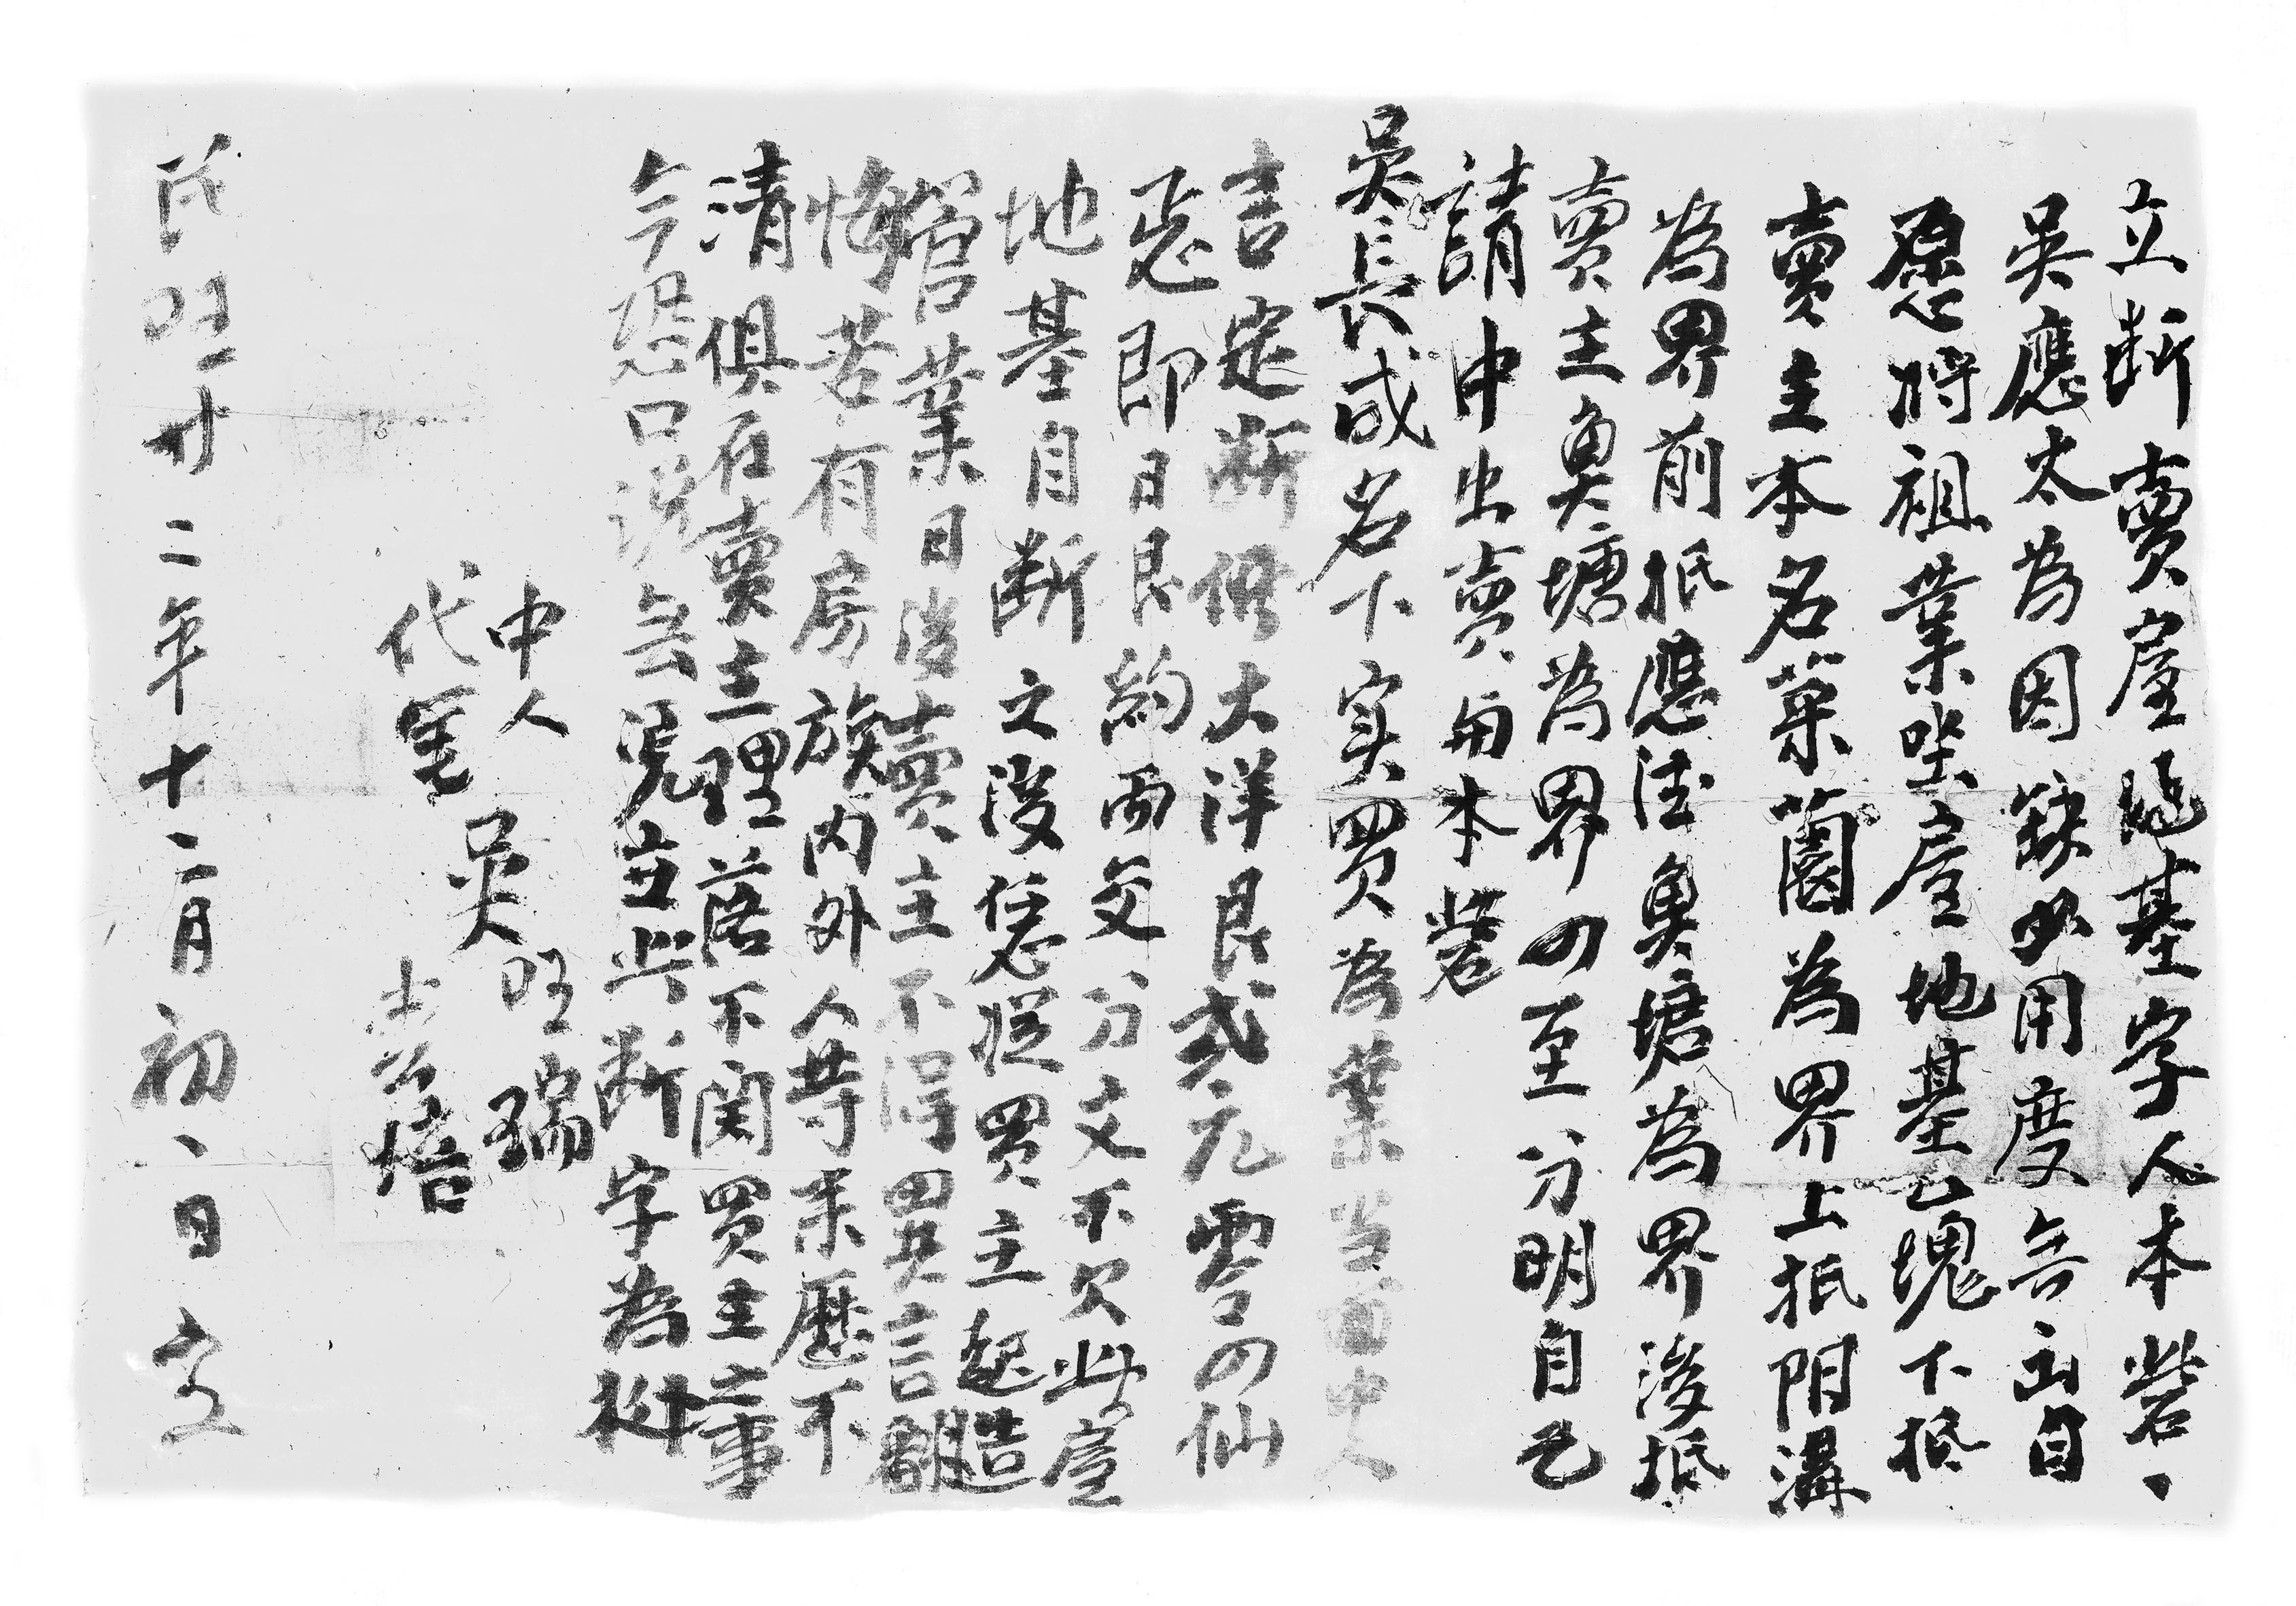 立断賣屋地基字人本砦、
吳應太為因缺少用度無出自
愿将祖業坐屋地基乙塊下抵
賣主本名菜薗為界上抵阴溝
為界前抵應法魚塘為界後抵
賣主魚塘為界四至分明自己
請中出賣與本砦
吳長成名下实買為業当面中人
言定断價大洋艮弍元零四仙
正即日艮約両交分文不欠此屋
地基自断之後恁從買主起造
管業日後賣主不得異言翻
悔若有房族内外人等来歷不
清俱在賣主理落不関買主之事
今恐口说無凭立此断字為拠
中人 吳旺瑞
代笔 培
民囯廿二年十二月初二日立